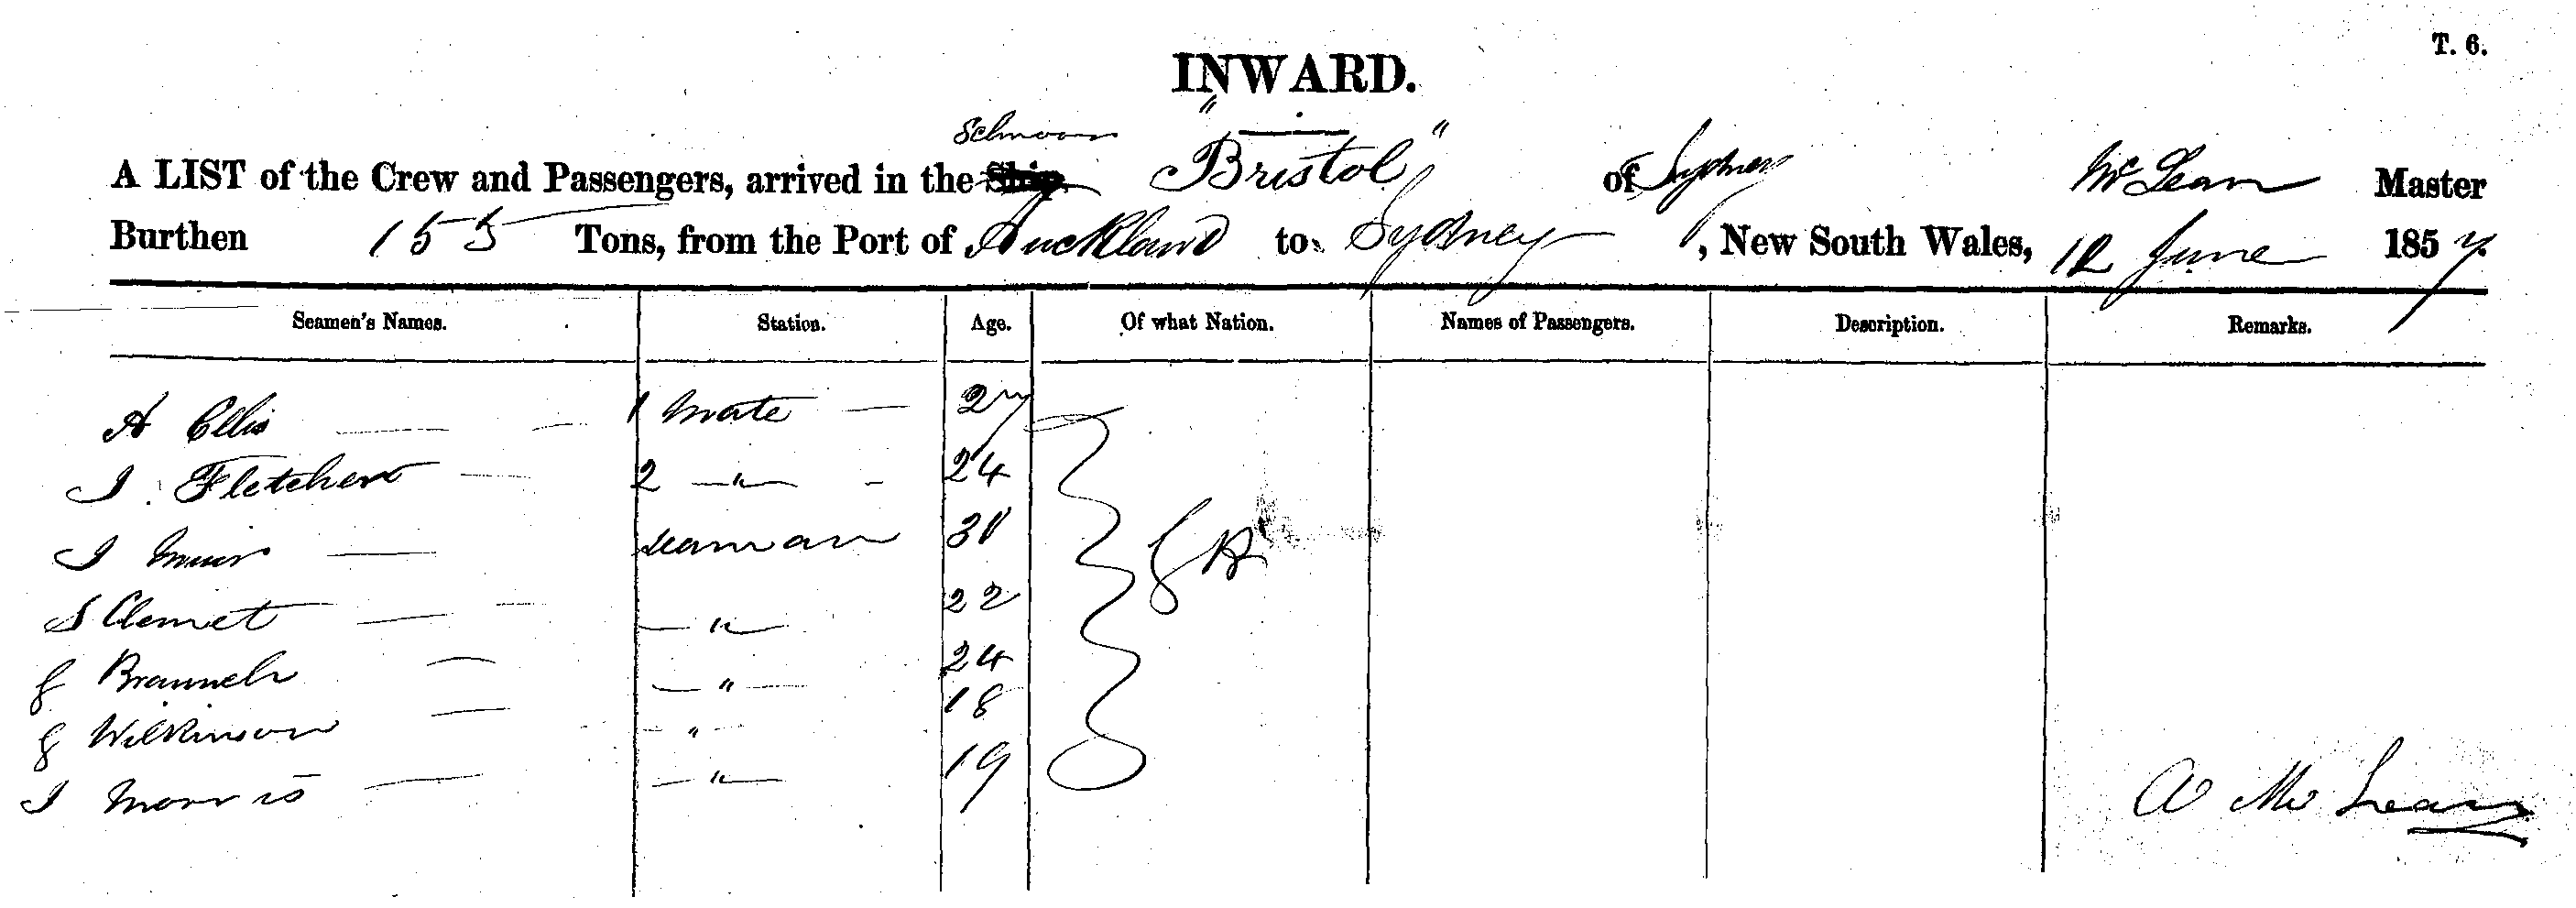 T. 6.
INWARD.
Schooner
A LIST of the Crew and Passengers, arrived in the Ship "Bristol" of Sydney McLean Master
Burthen 155 Tons, from the Port of Auckland to Sydney, New South Wales, 12 June 1857
Seamen's Names. Station. Age. Of what Nation. Names of Passengers. Description. Remarks.
A Ellis 1 Mate 27
J. Fletcher 2 " 24
J Muir seaman 31
S Clemet " 22
G 24
G Wilkinson " 18
J Morris " 19
GB
A McLean